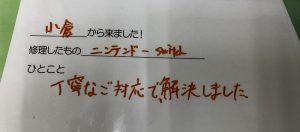 小倉から来ました!
修理したもの ニンテンドー Switch
ひとこと
丁寧なご対応で解決しました